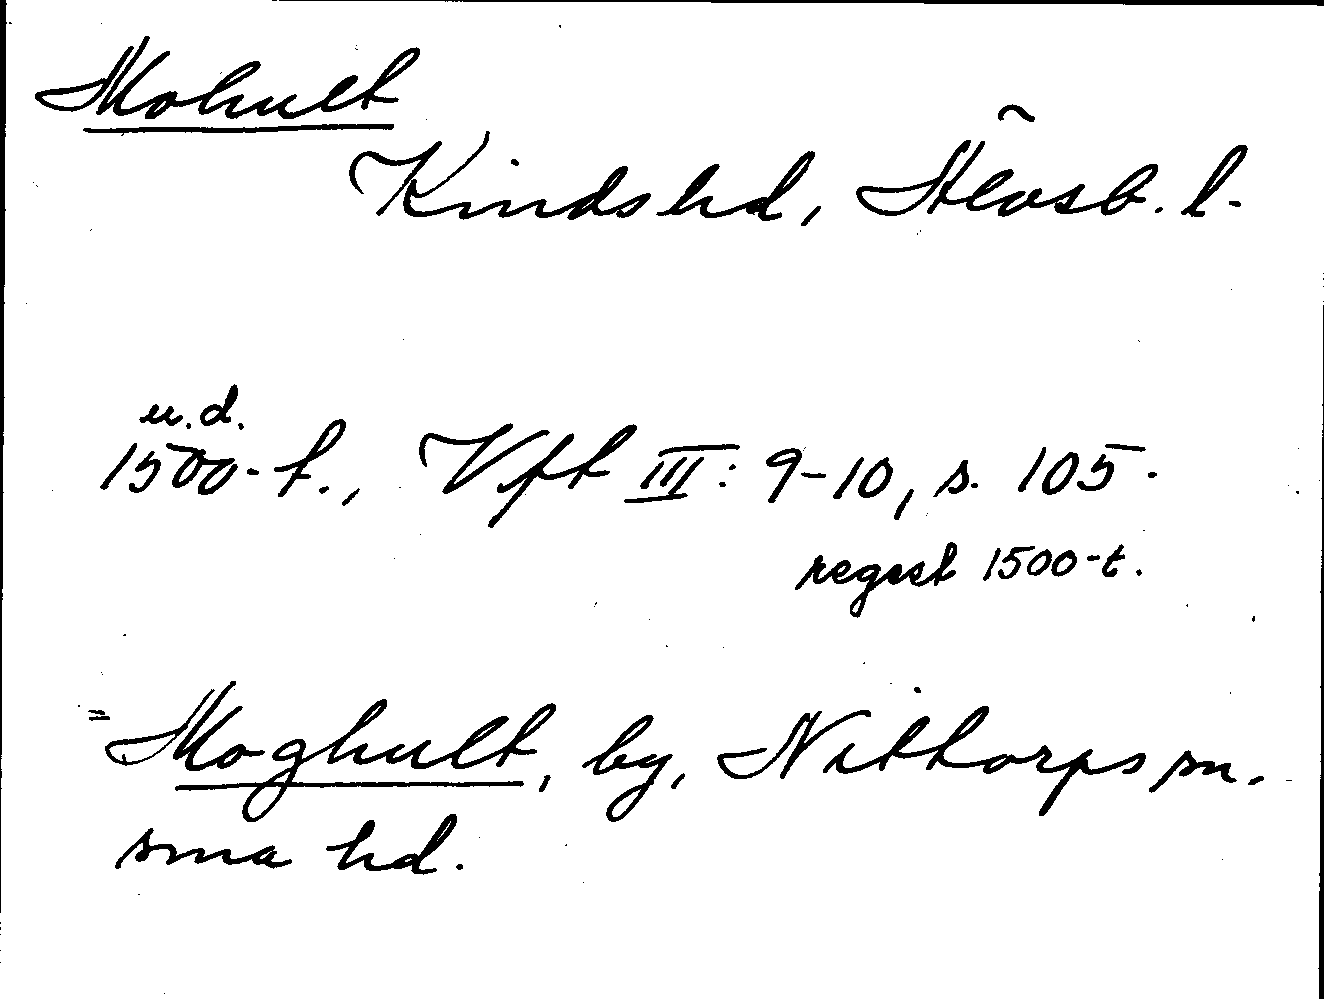 Mohult
Kinds hd, Älvsb. l.
u.d.
1500-t., Vft III: 9-10, s. 105.
regest 1500-t.
= Moghult, by, Nittorps sn.
sma hd.